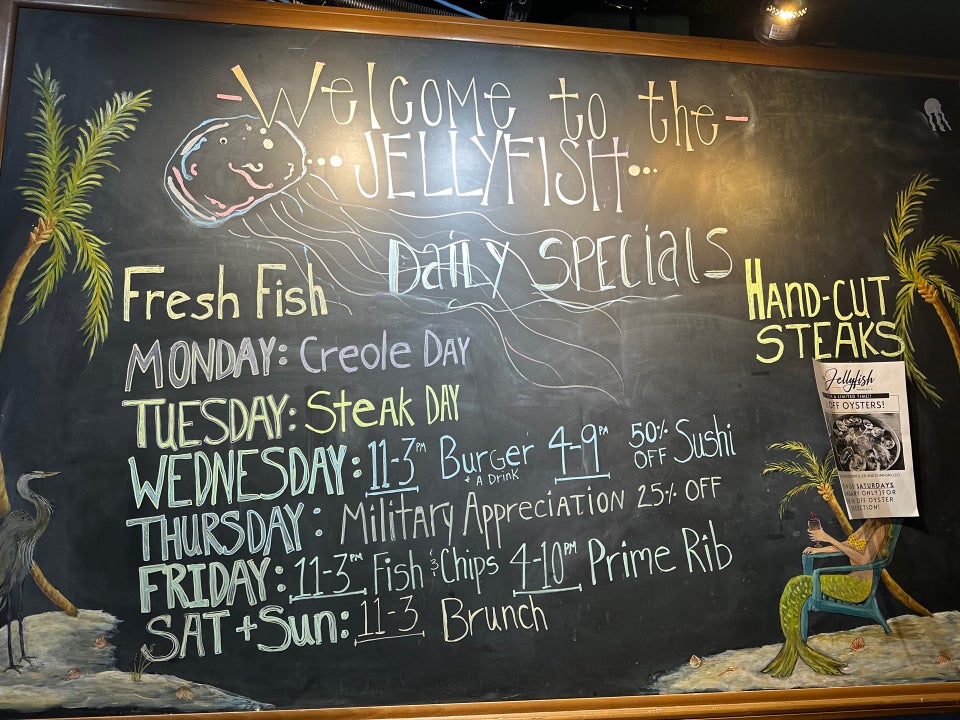 - Welcome to the -
JELLYFISH
Daily Specials
Fresh Fish
HAND-CUT
STEAKS
MONDAY: Creole DAY
TUESDAY: Steak DAY
WEDNESDAY: 11-3PM Burger + A DRINK 4-9PM 50% OFF Sushi
THURSDAY: Military Appreciation 25% OFF
FRIDAY: 11-3PM Fish & Chips 4-10PM Prime Rib
SAT + Sun: 11-3 Brunch
Jellyfish
A LIMITED TIME!!
OFF OYSTERS!
SATURDAYS
ONLY) FOR
OFF OYSTER